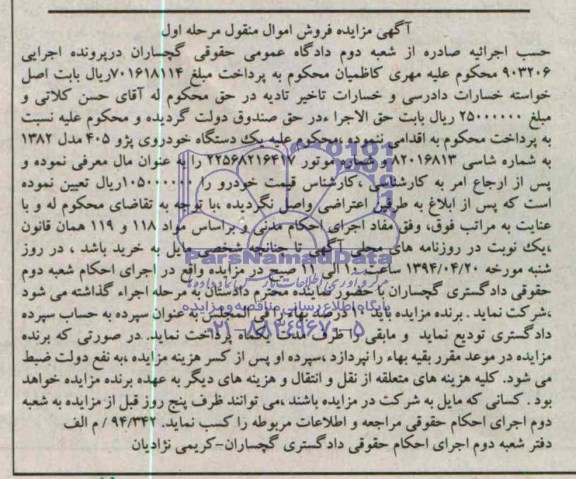 آگهی مزایده فروش اموال منقول مرحله اول
حسب اجرائیه صادره از شعبه دوم دادگاه عمومی حقوقی گچساران درپرونده اجرایی
۹۰۳۲۰۶ محکوم علیه مهری کاظمیان محکوم به پرداخت مبلغ ۷۰۱۶۱۸۱۱۴ریال بابت اصل
خواسته خسارات دادرسی و خسارات تاخیر تادیه در حق محکوم له آقای حسن کلاتی و
مبلغ ۲۵۰۰۰۰۰۰ ریال بابت حق الاجرا ،در حق صندوق دولت گردیده و محکوم علیه نسبت
به پرداخت محکوم به اقدامی ننموده ،محکوم علیه یک دستگاه خودروی پژو ۴۰۵ مدل ۱۳۸۲
به شماره شاسی ۸۲۰۱۶۸۱۳ و شماره موتور ۲۲۵۶۸۲۱۶۴۱۷ را به عنوان مال معرفی نموده و
پس از ارجاع امر به کارشناسی ،کارشناس قیمت خودرو را ۱۰۵۰۰۰۰۰۰ریال تعیین نموده
است که پس از ابلاغ به طرفین اعتراضی واصل نگردیده ،با توجه به تقاضای محکوم له و با
عنایت به مراتب فوق، وفق مفاد اجرای احکام مدنی و براساس مواد ۱۱۸ و ۱۱۹ همان قانون
،یک نوبت در روزنامه های محلی آگهی تا چنانچه شخصی مایل به خرید باشد ، در روز
شنبه مورخه ۱۳۹۴/۰۴/۲۰ ساعت ۱۰ الی ۱۱ صبح در مزایده واقع در اجرای احکام شعبه دوم
حقوقی دادگستری گچساران با حضور نماینده محترم دادستان به مرحله اجراء گذاشته می شود
،شرکت نماید . برنده مزایده باید ۱۰ درصد بهاء را فی المجلس به عنوان سپرده به حساب سپرده
دادگستری تودیع نماید و مابقی را ظرف مدت یکماه پرداخت نماید. در صورتی که برنده
مزایده در موعد مقرر بقیه بهاء را نپردازد ،سپرده او پس از کسر هزینه مزایده ،به نفع دولت ضبط
می شود. کلیه هزینه های متعلقه از نقل و انتقال و هزینه های دیگر به عهده برنده مزایده خواهد
بود . کسانی که مایل به شرکت در مزایده باشند ،می توانند ظرف پنج روز قبل از مزایده به شعبه
دوم اجرای احکام حقوقی مراجعه و اطلاعات مربوطه را کسب نماید. ۹۴/۳۴۲ / م الف
دفتر شعبه دوم اجرای احکام حقوقی دادگستری گچساران-کریمی نژادیان
ParsNamadData
پایگاه اطلاع رسانی مناقصه و مزایده
۰۲۱-۸۸۳۴۹۶۷۰-۵